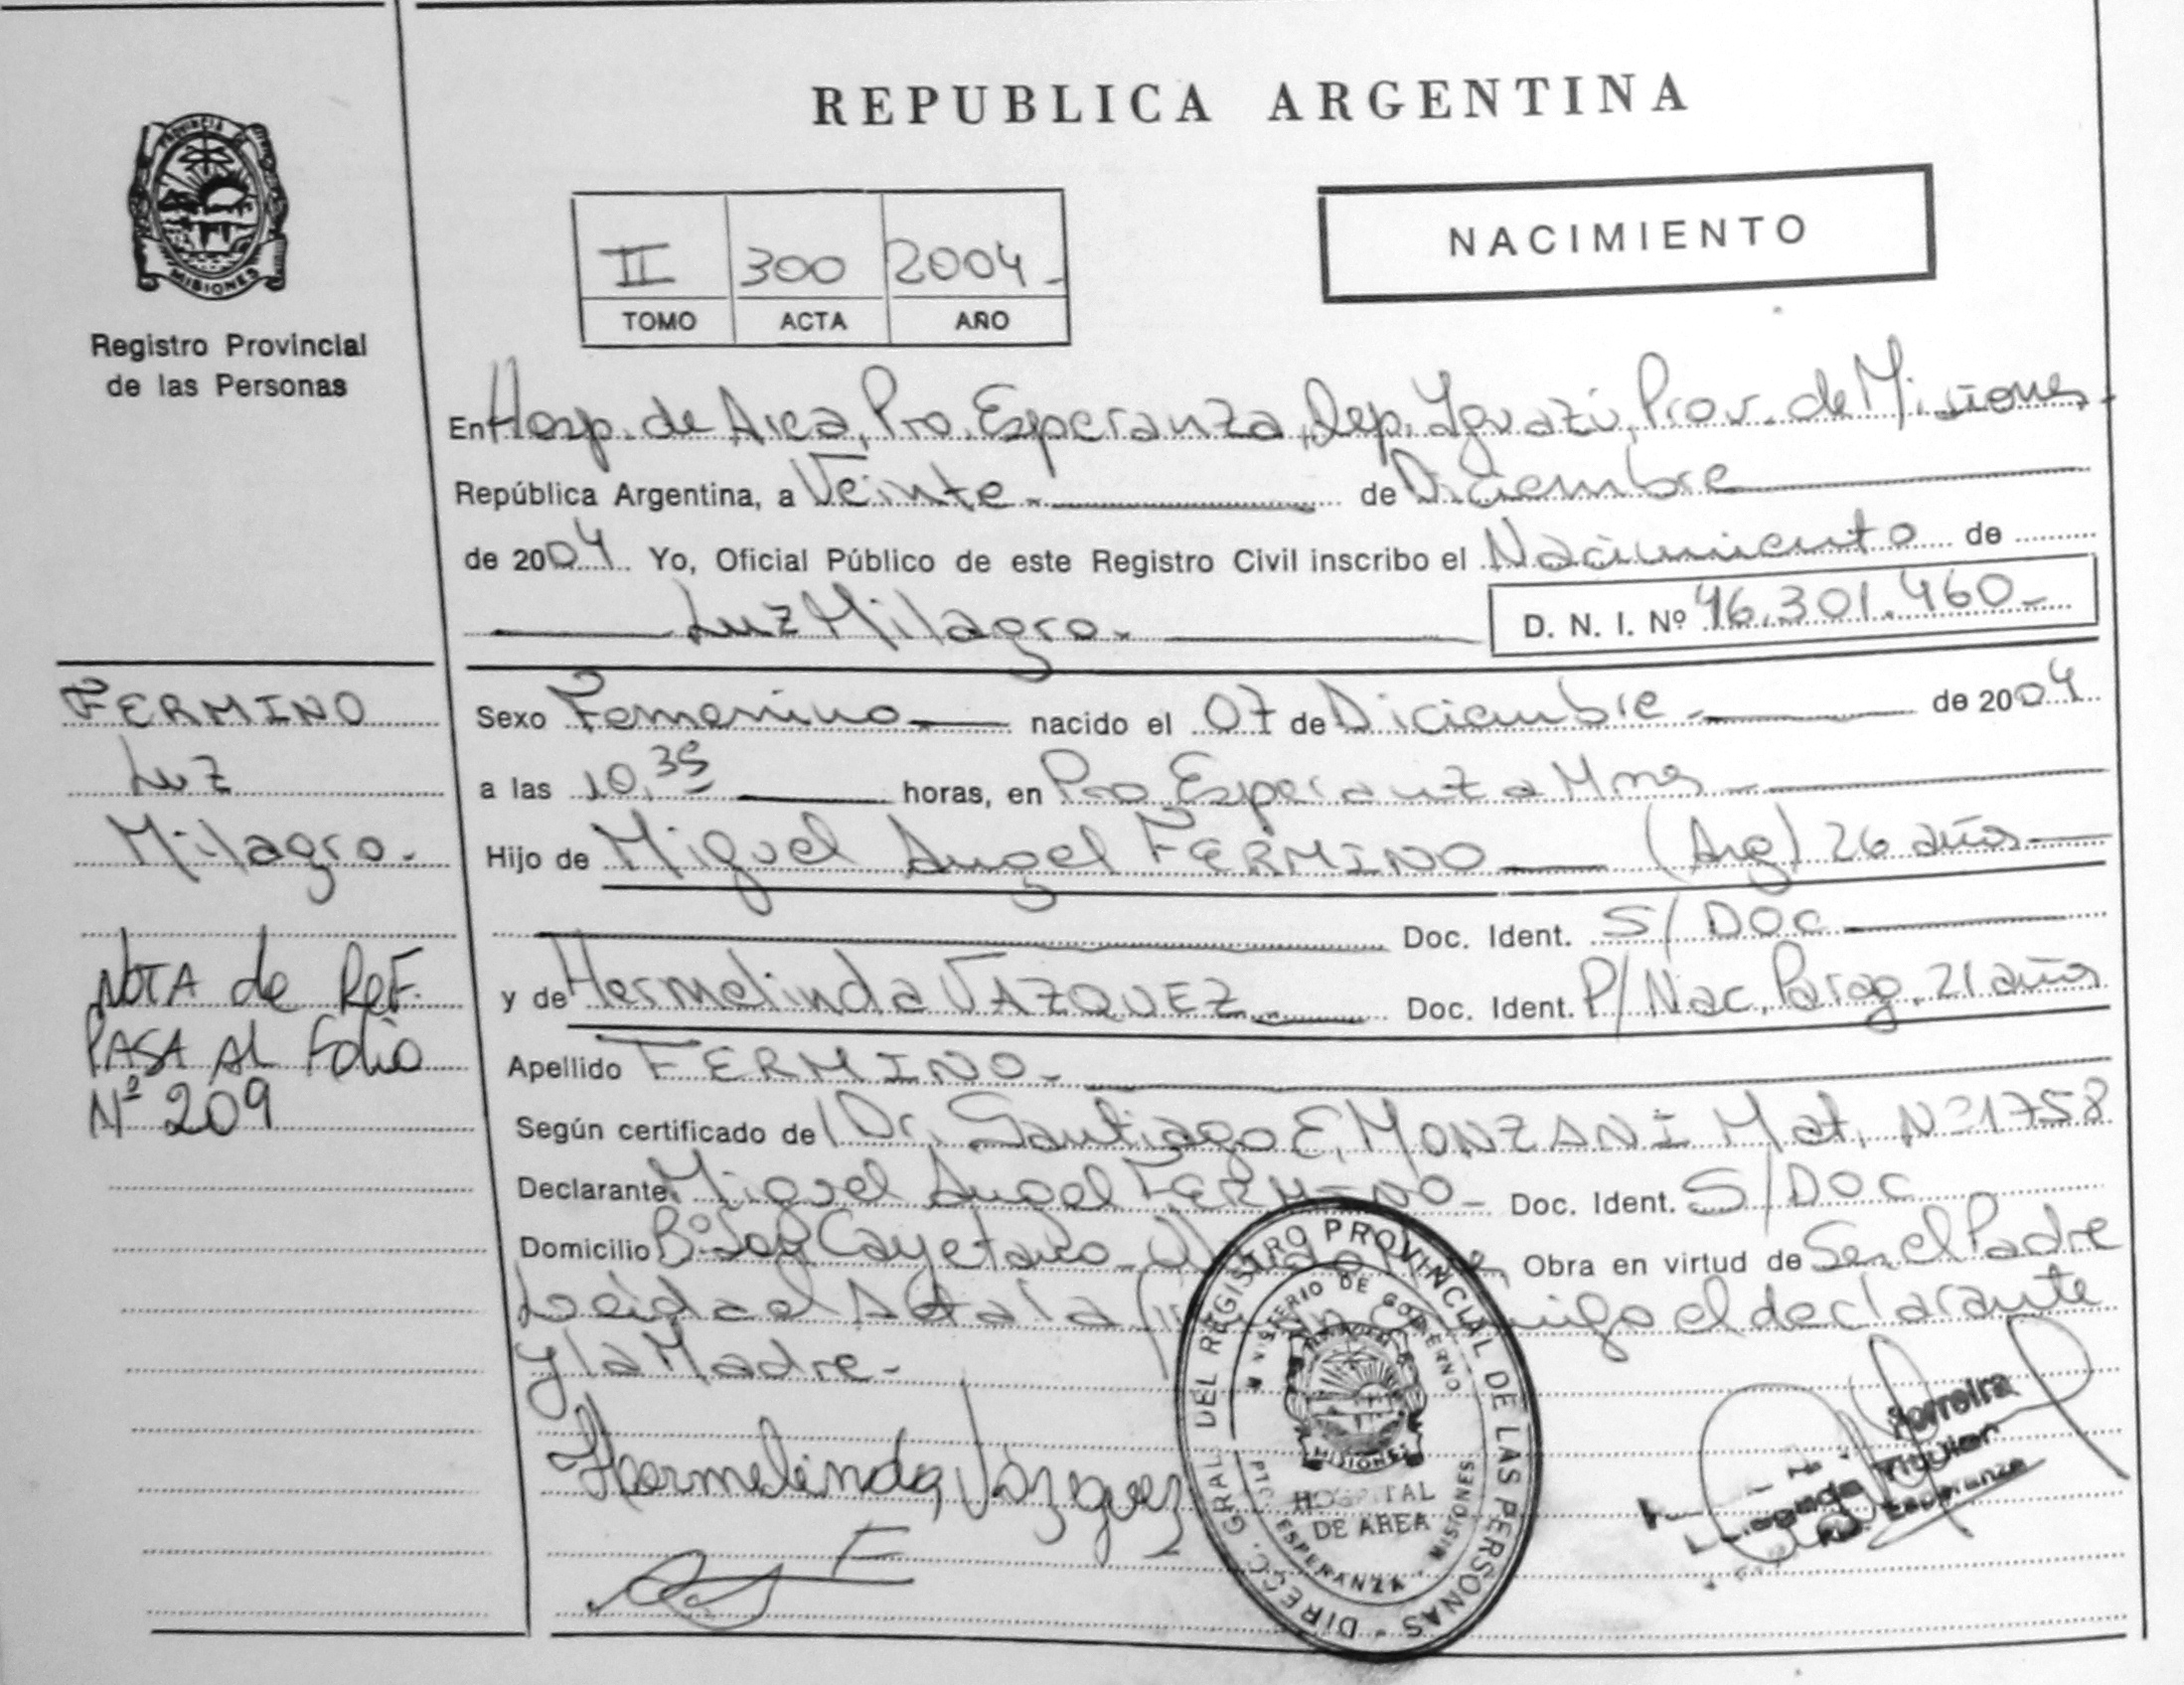 REPUBLICA ARGENTINA
PROVINCIA DE
MISIONES
Registro Provincial
de las Personas
II 300 2004-
TOMO ACTA AÑO
NACIMIENTO
En Hosp. de Area, Pto. Esperanza, Dep. Iguazú, Prov. de Misiones.
República Argentina, a Veinte. de Diciembre
de 2004 Yo, Oficial Público de este Registro Civil inscribo el Nacimiento de
Luz Milagro.
D. N. I. Nº 46.301.460-
FERMINO
Luz
Milagro.
NOTA de ReF.
PASA AL Folio
Nº 209
Sexo Femenino nacido el 07 de Diciembre de 2004
a las 10,35 horas, en Pto Esperanza Mnes
Hijo de Miguel Angel FERMINO (Arg) 26 años
Doc. Ident. S/DOC
y de Hermelinda VAZQUEZ Doc. Ident. P/Nac. Parag. 21 años
Apellido FERMINO.
Según certificado de Dr. Santiago E. MONZANI Mat. Nº 1758
Declarante Miguel Angel FERMINO Doc. Ident. S/DOC
Domicilio Bº San Cayetano Obra en virtud de Ser el Padre
Leída el Acta la conmigo el declarante
y la Madre.
Hermelinda Vazquez
DIRECC. GRAL. DEL REGISTRO PROVINCIAL DE LAS PERSONAS
MINISTERIO DE GOBIERNO
MISIONES
HOSPITAL
DE AREA
PTO. ESPERANZA - MISIONES
Ferreira
Titular
Esperanza